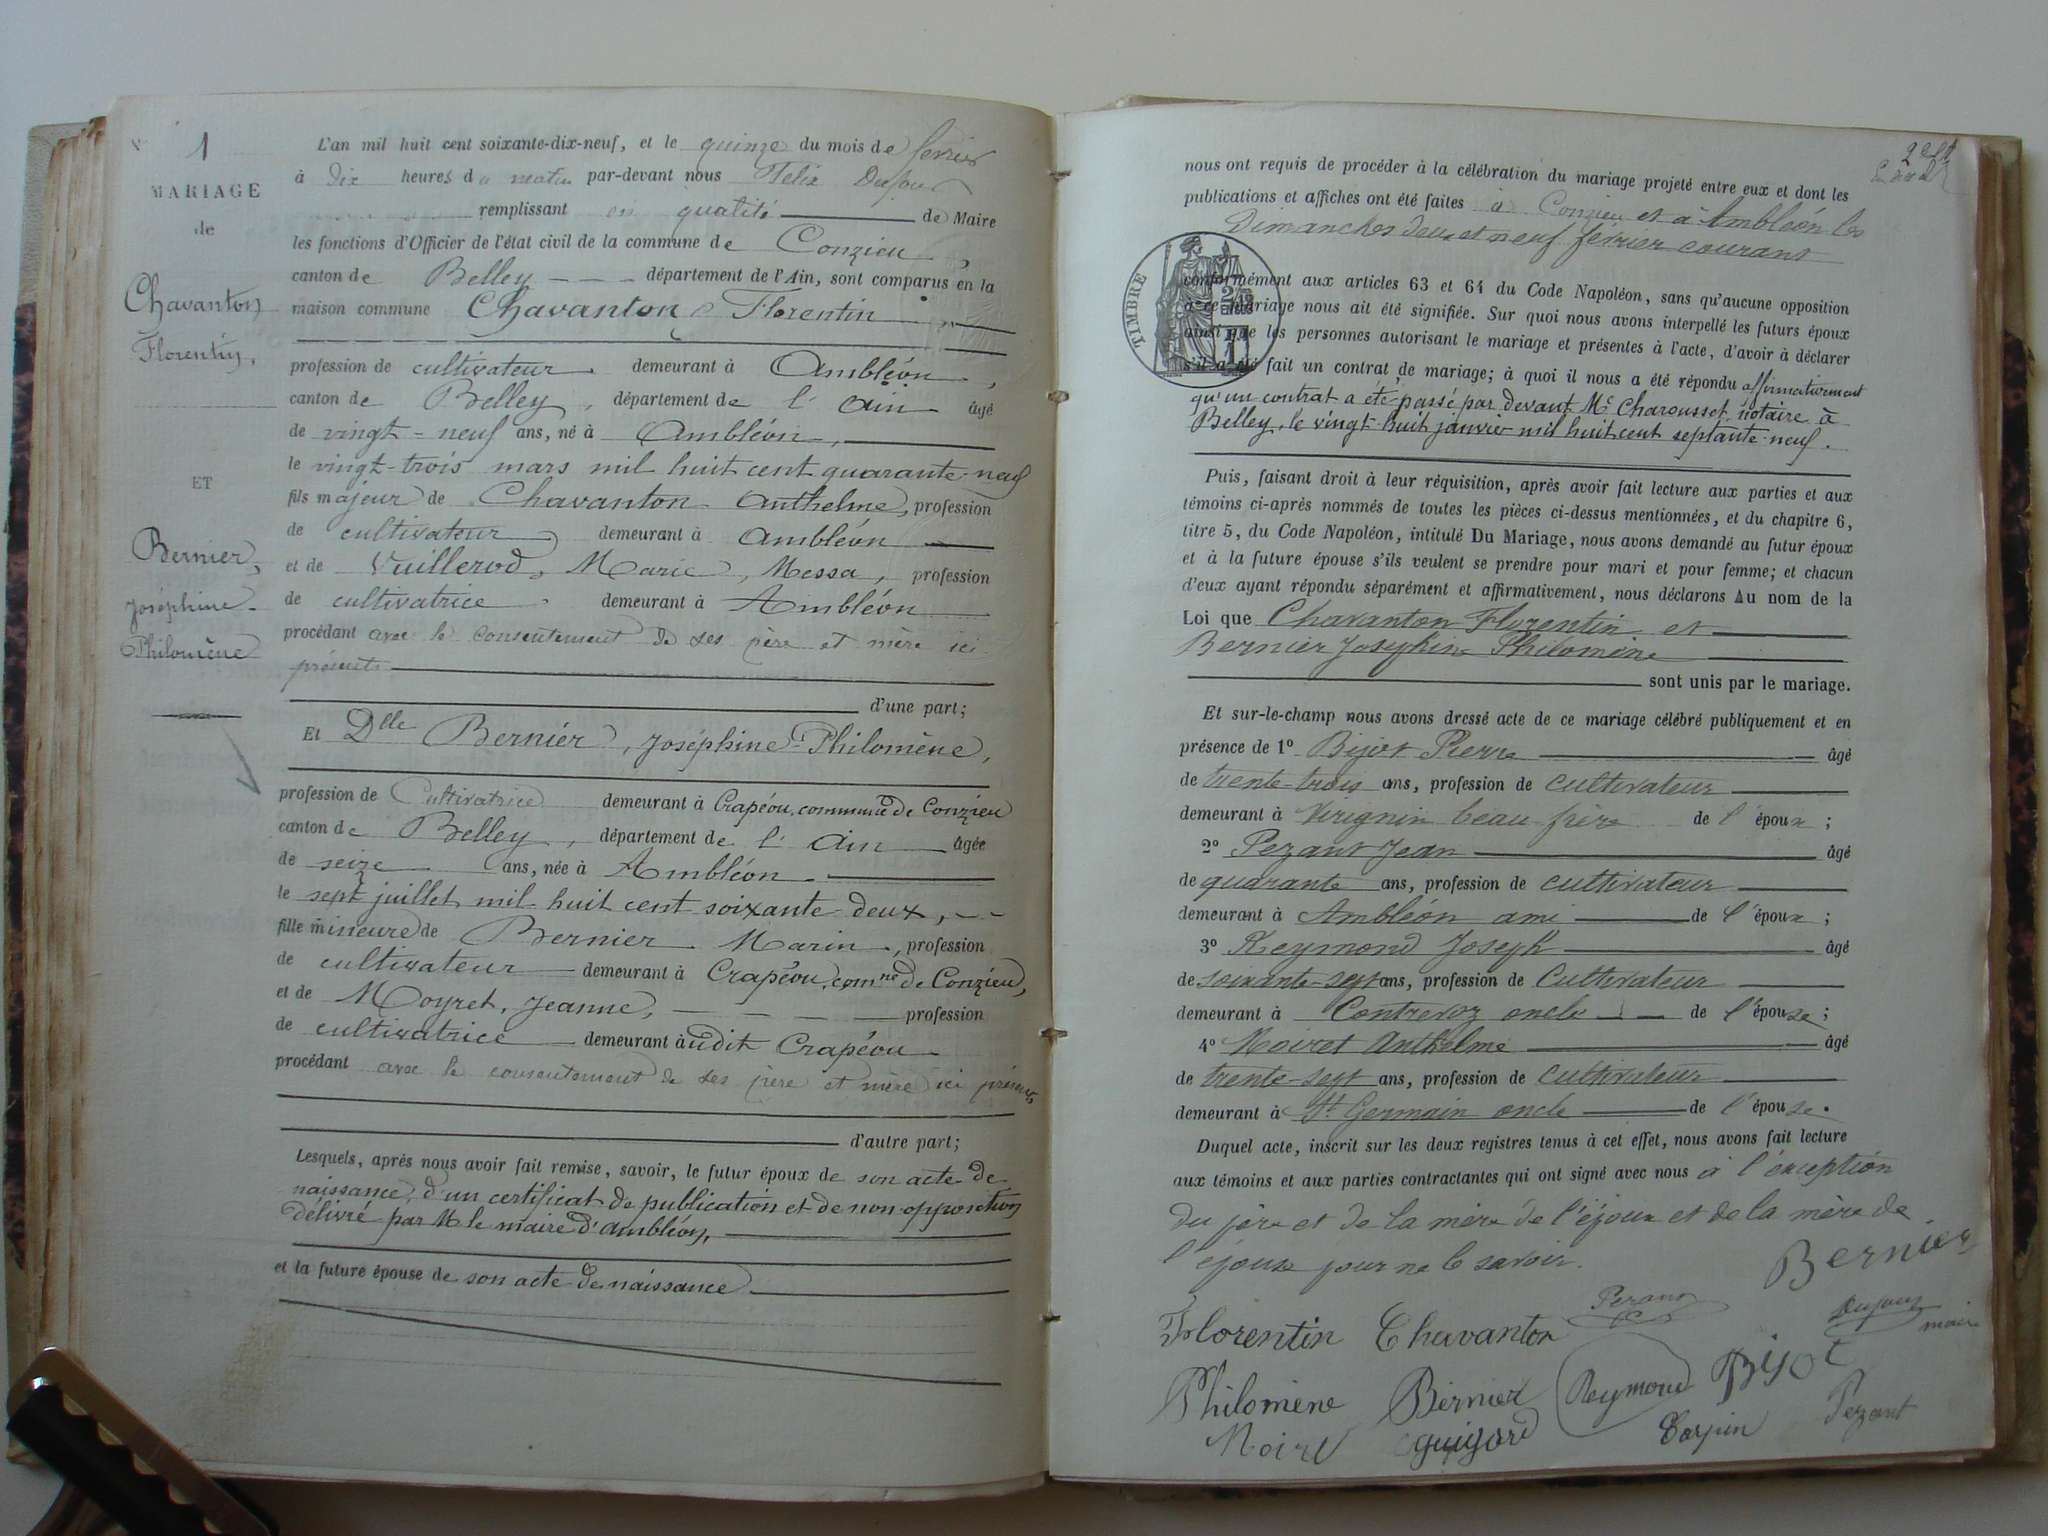 N° 1
MARIAGE
de
Chavanton
Florentin,
ET
Bernier,
Joséphine
Philomène
L'an mil huit cent soixante-dix-neuf, et le quinze du mois de février
à dix heures du matin par-devant nous Félix Dufour
remplissant en qualité de Maire
les fonctions d'Officier de l'état civil de la commune de Conzieu,
canton de Belley département de l'Ain, sont comparus en la
maison commune Chavanton Florentin,
profession de cultivateur demeurant à Ambléon,
canton de Belley, département de l'Ain âgé
de vingt-neuf ans, né à Ambléon,
le vingt-trois mars mil huit cent quarante-neuf
fils majeur de Chavanton Anthelme, profession
de cultivateur demeurant à Ambléon
et de Vuillerod, Marie, Messa, profession
de cultivatrice demeurant à Ambléon
procédant avec le consentement de ses père et mère ici
présents
d'une part;
Et Dlle Bernier, Joséphine-Philomène,
profession de Cultivatrice demeurant à Crapéou, commune de Conzieu
canton de Belley, département de l'Ain âgée
de seize ans, née à Ambléon
le sept juillet mil huit cent soixante-deux,
fille mineure de Bernier Marin, profession
de cultivateur demeurant à Crapéou, comne de Conzieu,
et de Moyret, Jeanne, profession
de cultivatrice demeurant à udit Crapéou
procédant avec le consentement de ses père et mère ici présents,
d'autre part;
Lesquels, après nous avoir fait remise, savoir, le futur époux de son acte de
naissance, d'un certificat de publication et de non-opposition
délivré par M le maire d'Ambléon,
et la future épouse de son acte de naissance
nous ont requis de procéder à la célébration du mariage projeté entre eux et dont les
publications et affiches ont été faites à Conzieu et à Ambléon les
Dimanches deux et neuf février courant
TIMBRE
conformément aux articles 63 et 64 du Code Napoléon, sans qu'aucune opposition
à ce mariage nous ait été signifiée. Sur quoi nous avons interpellé les futurs époux
ainsi que les personnes autorisant le mariage et présentes à l'acte, d'avoir à déclarer
s'il a été fait un contrat de mariage; à quoi il nous a été répondu affirmativement
qu'un contrat a été passé par devant Me Charousset, notaire à
Belley, le vingt-huit janvier mil huit cent septante-neuf.
Puis, faisant droit à leur réquisition, après avoir fait lecture aux parties et aux
témoins ci-après nommés de toutes les pièces ci-dessus mentionnées, et du chapitre 6,
titre 5, du Code Napoléon, intitulé Du Mariage, nous avons demandé au futur époux
et à la future épouse s'ils veulent se prendre pour mari et pour femme; et chacun
d'eux ayant répondu séparément et affirmativement, nous déclarons Au nom de la
Loi que Chavanton Florentin et
Bernier Josephine Philomène
sont unis par le mariage.
Et sur-le-champ nous avons dressé acte de ce mariage célébré publiquement et en
présence de 1° Bijot Pierre âgé
de trente-trois ans, profession de cultivateur
demeurant à Virignin beau-frère de l'époux;
2° Pezant Jean âgé
de quarante ans, profession de cultivateur
demeurant à Ambléon ami de l'époux;
3° Reymond Joseph âgé
de soixante-sept ans, profession de Cultivateur
demeurant à Contrevoz oncle de l'épouse;
4° Moiret Anthelme âgé
de trente-sept ans, profession de Cultivateur
demeurant à St Germain oncle de l'épouse.
Duquel acte, inscrit sur les deux registres tenus à cet effet, nous avons fait lecture
aux témoins et aux parties contractantes qui ont signé avec nous à l'exception
du père et de la mère de l'époux et de la mère de
l'épouse pour ne le savoir.
Bernier
Florentin Chavanton
Dufour
maire
Philomène Bernier Reymond Bijot
Moiret Guigard Carpin Pezant